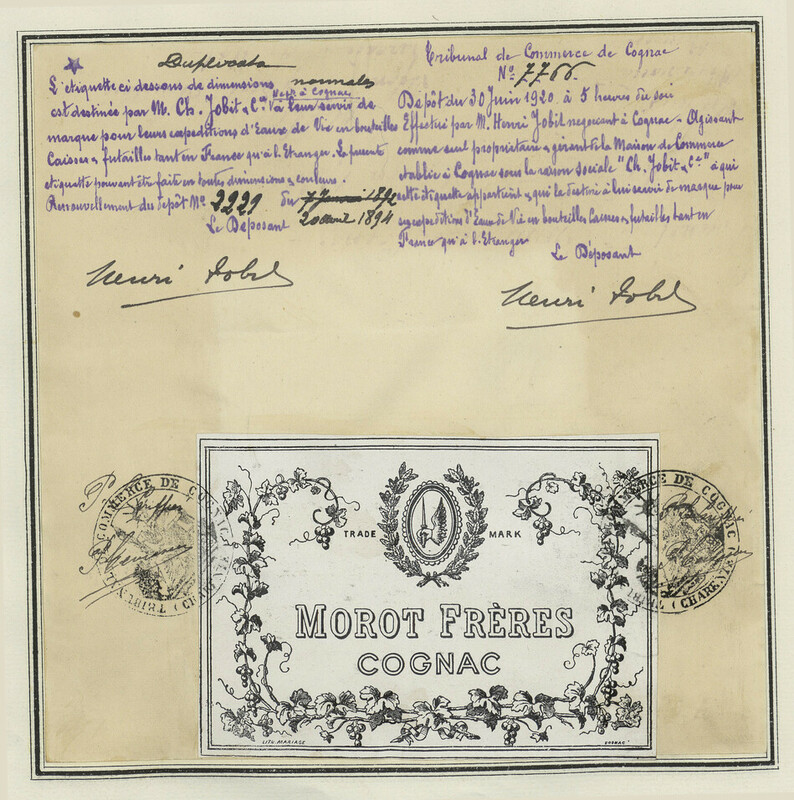 Duplicata
L'étiquette ci dessous de dimensions normales
est destinée par M. Ch. Jobit & Cie Negts à Cognac à leur servir de
marque pour leurs expéditions d'Eaux de Vie en bouteilles
Caisses & futailles tant en France qu'à l'Etranger. La présente
étiquette pouvant être faite en toutes dimensions & couleurs.
Renouvellement du dépôt No. 2229 du 7 Janvier 1894
20 avril 1894
Le Déposant
Henri Jobit
Tribunal de Commerce de Cognac
No. 7766
Dépôt du 30 Juin 1920 à 5 heures du soir
Effectué par M. Henri Jobit negociant à Cognac - Agissant
comme seul propriétaire & gérant de la Maison de Commerce
établie à Cognac sous la raison sociale "Ch. Jobit & Cie" à qui
cette étiquette appartient & qui la destine à lui servir de marque pour
ses expéditions d'Eaux de Vie en bouteilles Caisses & futailles tant en
France qu'à l'Etranger
Le Déposant
Henri Jobit
TRADE MARK
MOROT FRÈRES
COGNAC
LITH. MARIAGE
COGNAC
COMMERCE DE COGNAC
TRIBUNAL
(CHARENTE)
COMMERCE DE COGNAC
(CHARENTE)